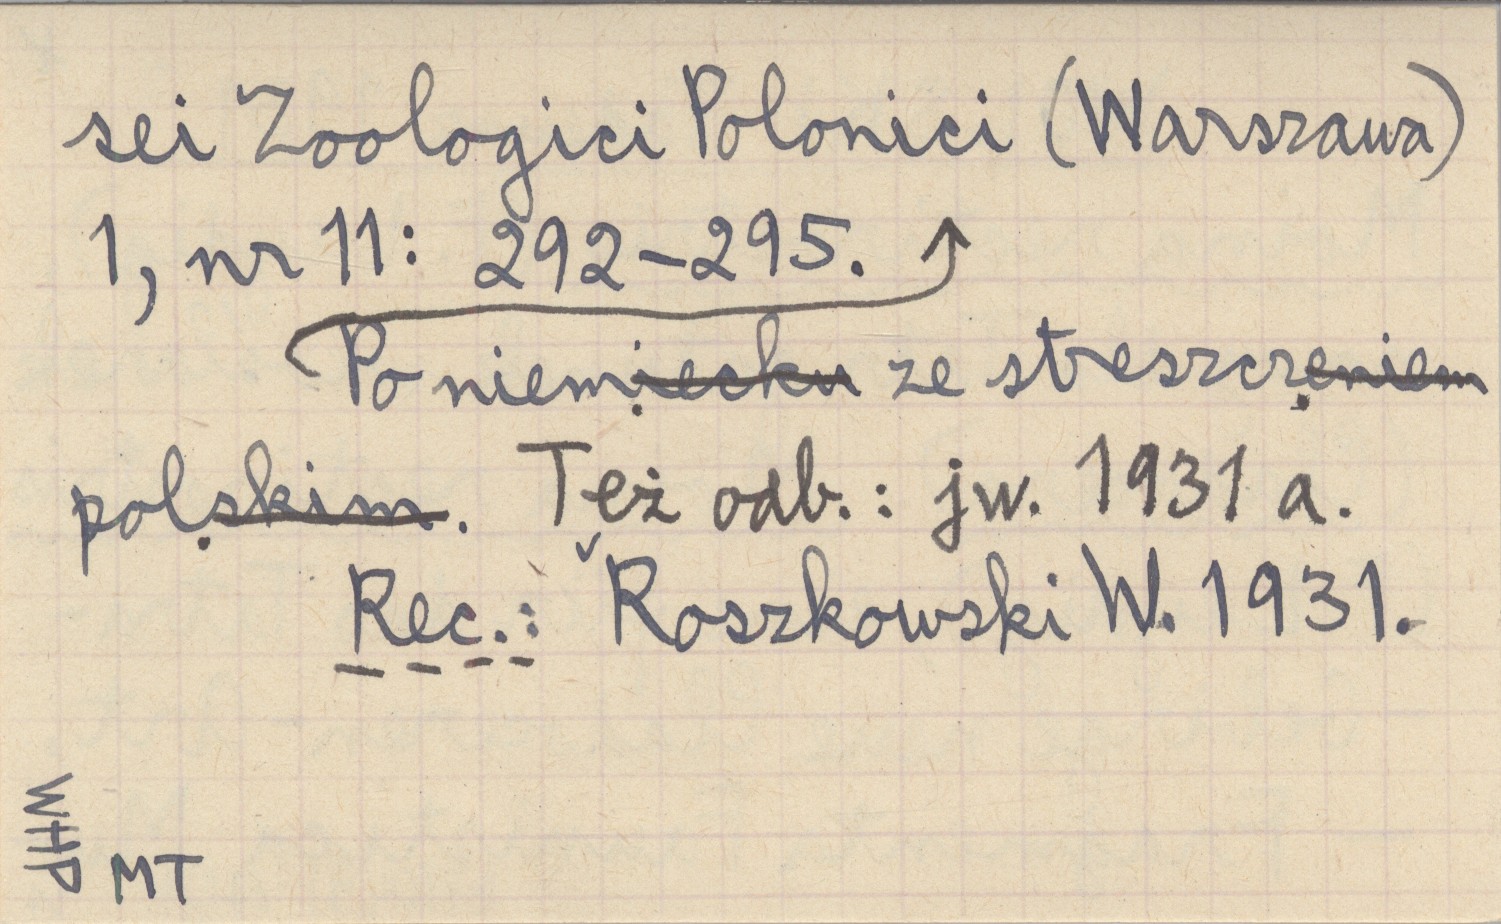 sei Zoologici Polonici (Warszawa)
1, nr 11: 292–295.
Po niemiecku ze streszczeniem
polskim. Też odb.: jw. 1931 a.
Rec.: Roszkowski W. 1931.
WHP
MT